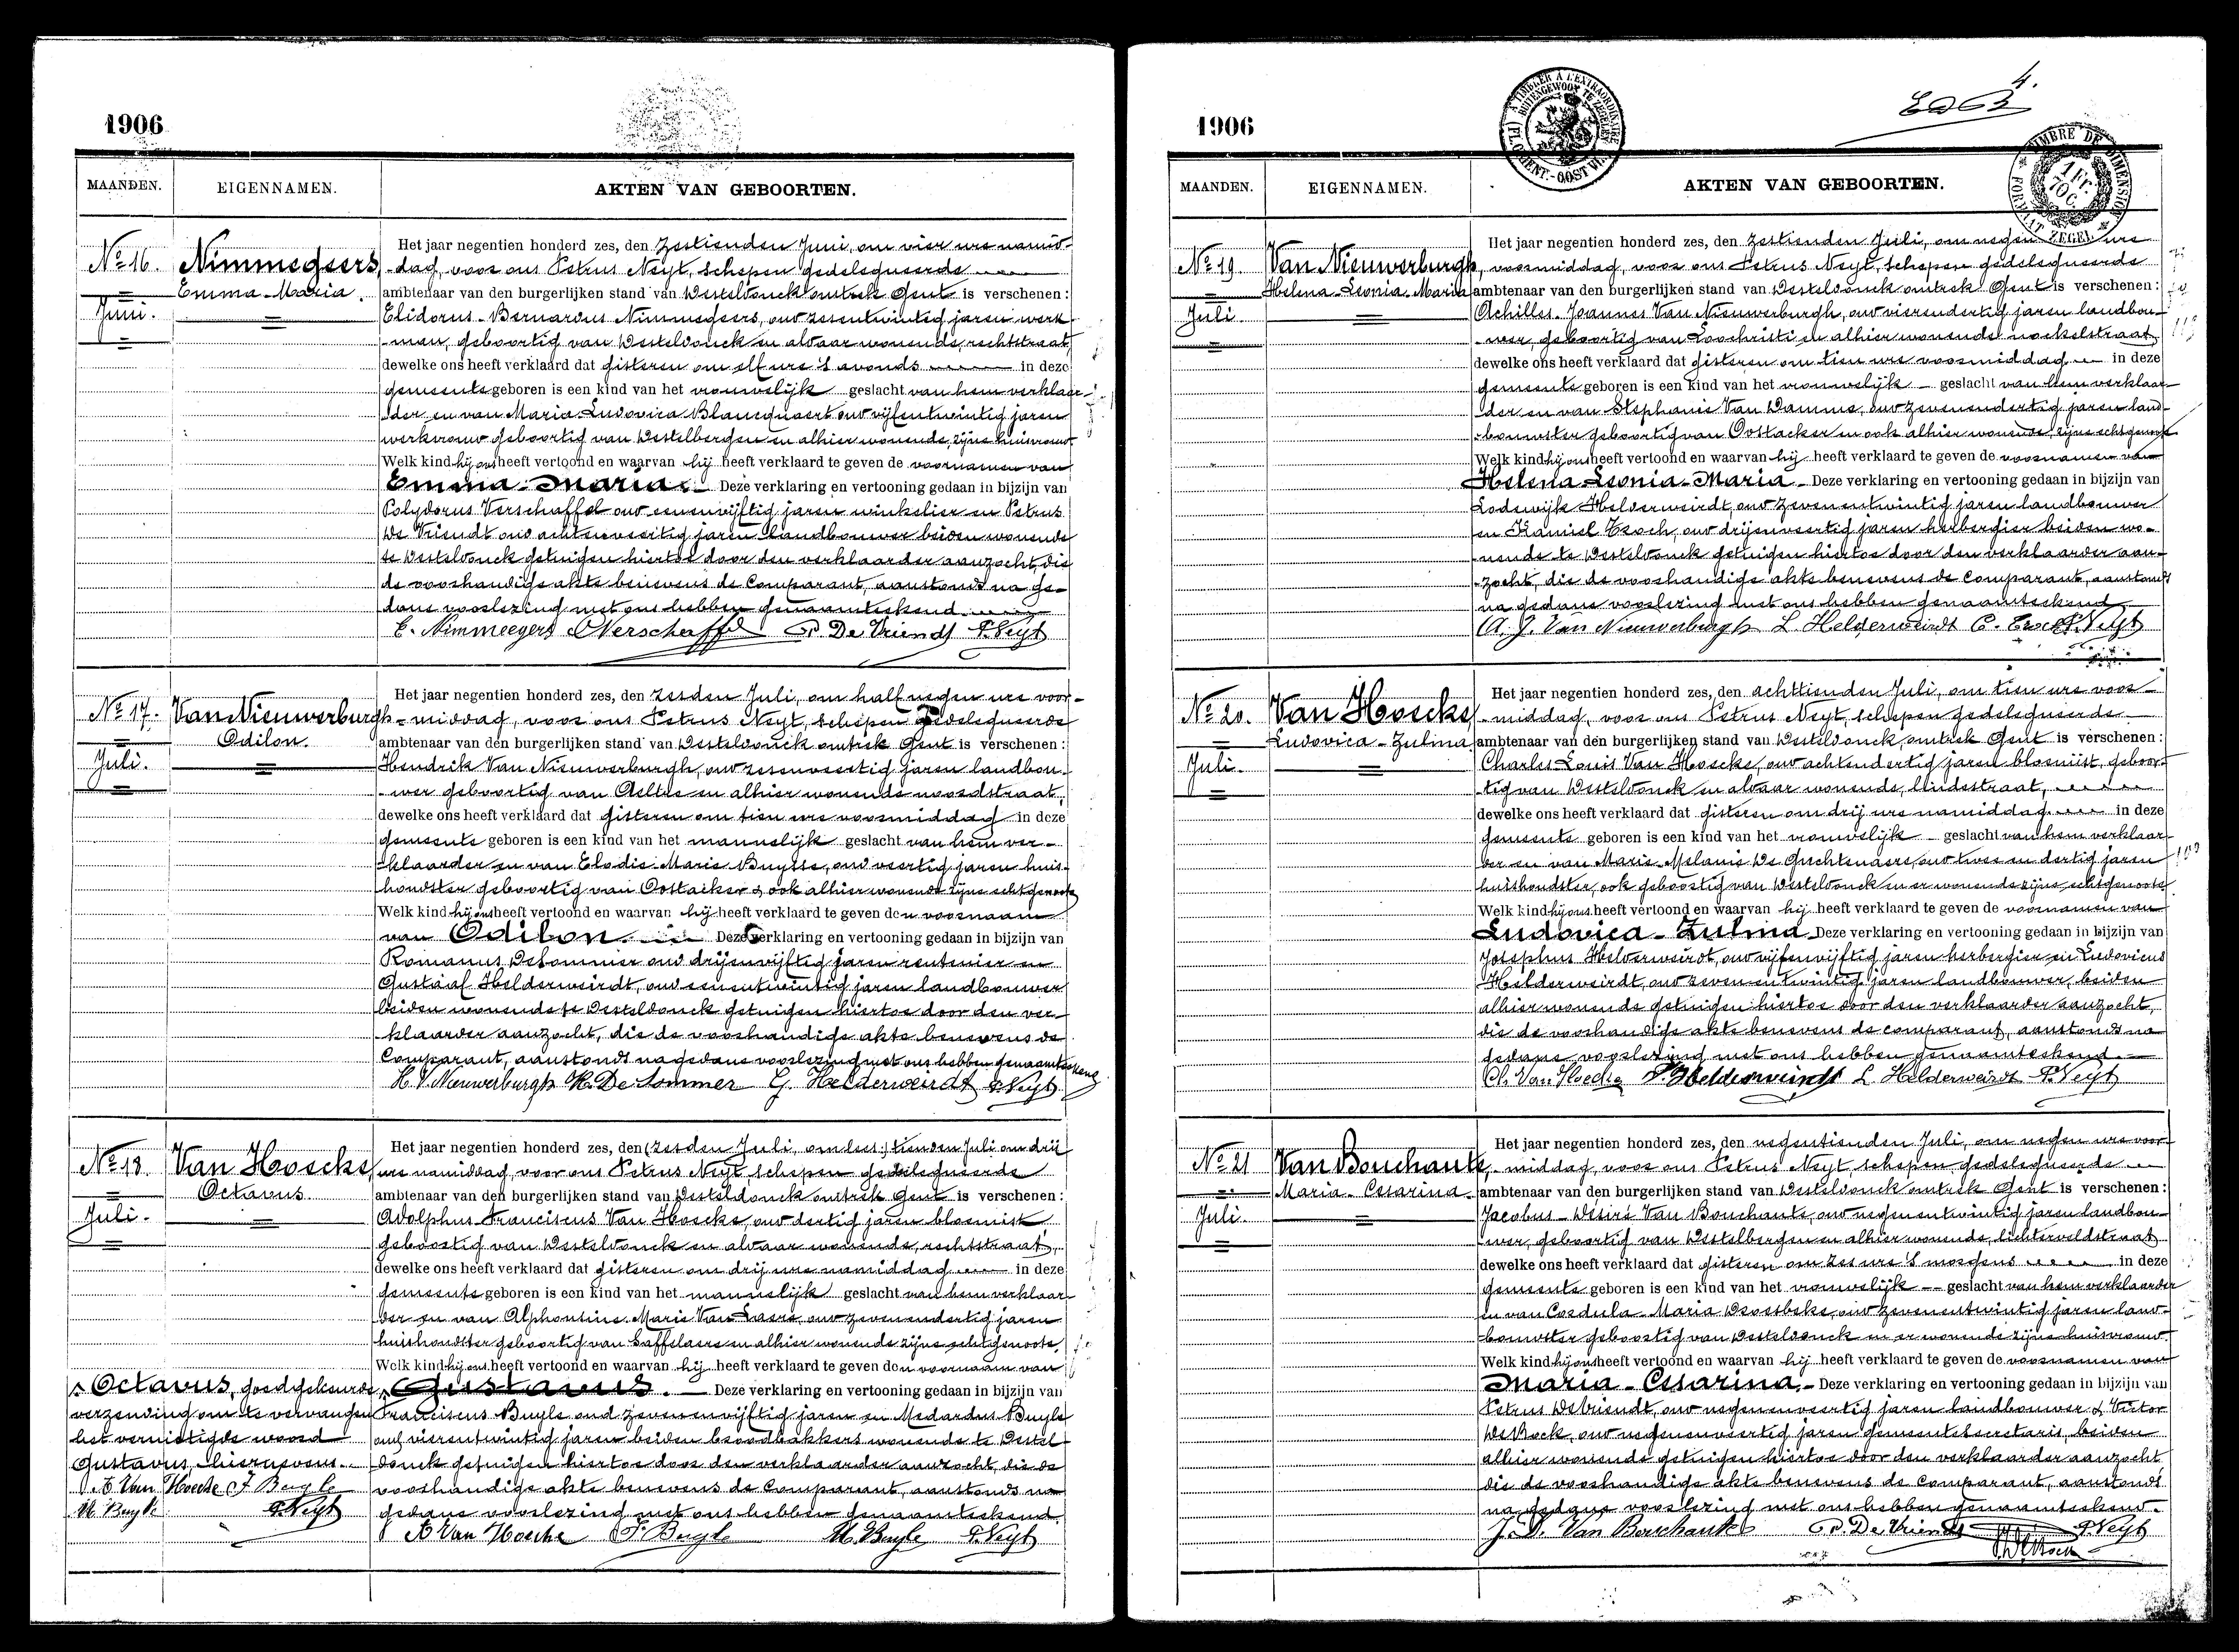 1906
MAANDEN. EIGENNAMEN. AKTEN VAN GEBOORTEN.
No 16. Nimmegeers
Emma-Maria.
Juni.
Het jaar negentien honderd zes, den zestienden Juni, om vier ure namid-
-dag, voor ons Petrus Neyt, schepen gedelegueerde
ambtenaar van den burgerlijken stand van Desteldonck omtrek Gent is verschenen:
Elidorus-Bernardus Nimmegeers, oud zesentwintig jaren werk-
-man, geboortig van Desteldonck en aldaar wonende, rechtstraat,
dewelke ons heeft verklaard dat gisteren om elf ure 's avonds in deze
gemeente geboren is een kind van het vrouwelijk geslacht van hem verklaar-
-der en van Maria-Ludovica Blancquaert oud vijfentwintig jaren
werkvrouw geboortig van Destelbergen en alhier wonende, zijne huisvrouw
Welk kind hij ons heeft vertoond en waarvan hij heeft verklaard te geven de voornamen van
Emma-Maria. Deze verklaring en vertooning gedaan in bijzijn van
Polydorus Verschaffel oud eenenvijftig jaren winkelier en Petrus
De Vriendt oud achtenveertig jaren landbouwer beiden wonende
te Desteldonck getuigen hiertoe door den verklaarder aanzocht, die
de voorhandige akte benevens de Comparant, aanstonds na ge-
dane voorlezing met ons hebben genaamteekend.
E. Nimmegeers P Verschaffel P. De Vriendt P. Neyt
No 17. Van Nieuwerburgh
Odilon.
Juli.
Het jaar negentien honderd zes, den zesden Juli, om half negen ure voor-
-middag, voor ons Petrus Neyt, schepen gedelegueerde
ambtenaar van den burgerlijken stand van Desteldonck omtrek Gent is verschenen:
Hendrik Van Nieuwerburgh, oud zesenveertig jaren landbou-
-wer geboortig van Aeltre en alhier wonende noordstraat,
dewelke ons heeft verklaard dat gisteren om tien ure voormiddag in deze
gemeente geboren is een kind van het mannelijk geslacht van hem ver-
-klaarder en van Elodie-Marie Buysse, oud veertig jaren huis-
houdster geboortig van Oostacker & ook alhier wonende zijne echtgenoote
Welk kind hij ons heeft vertoond en waarvan hij heeft verklaard te geven den voornaam
van Odilon. Deze verklaring en vertooning gedaan in bijzijn van
Romanus Desommer oud drijenvijftig jaren rentenier en
Gustaaf Helderweirdt, oud eenentwintig jaren landbouwer
beiden wonende te Desteldonck getuigen hiertoe door den ver-
klaarder aanzocht, die de voorhandige akte benevens de
Comparant, aanstonds na gedane voorlezing met ons hebben genaamteekend
H. V. Nieuwerburgh R. De Sommer G. Helderweirdt P. Neyt
No 18. Van Hoecke
Octavus.
Juli.
Het jaar negentien honderd zes, den (zesden Juli, om lees:) tienden Juli om drij
ure namiddag, voor ons Petrus Neyt, schepen gedelegueerde
ambtenaar van den burgerlijken stand van Desteldonck omtrek Gent is verschenen:
Adolphus Franciscus Van Hoecke, oud dertig jaren bloemist
geboortig van Desteldonck en aldaar wonende, rechtstraat,
dewelke ons heeft verklaard dat gisteren om drij ure namiddag in deze
gemeente geboren is een kind van het mannelijk geslacht van hem verklaar-
der en van Alphonsine-Marie Van Laere, oud zevenendertig jaren
huishoudster geboortig van Saffelaere en alhier wonende zijne echtgenoote,
Welk kind hij ons heeft vertoond en waarvan hij heeft verklaard te geven den voornaam van
Gustavus. Deze verklaring en vertooning gedaan in bijzijn van
Franciscus Buyle oud zevenenvijftig jaren en Medardus Buyle
oud vierentwintig jaren beiden broodbakkers wonende te Destel-
donck getuigen hiertoe door den verklaarder aanzocht, die de
voorhandige akte benevens de Comparant, aanstonds na
gedane voorlezing met ons hebben genaamteekend.
A Van Hoecke F. Buyle M. Buyle P. Neyt
Octavus, goedgekeurde
verzending om te vervangen
het vernietigde woord
Gustavus, hiernevens.
A Van Hoecke F Buyle
M. Buyle P. Neyt
1906
4.
TIMBRE DE DIMENSION
1 Fr.
70 C.
FORMAAT ZEGEL
MAANDEN. EIGENNAMEN. AKTEN VAN GEBOORTEN.
No 19. Van Nieuwerburgh
Helena-Leonia-Maria
Juli.
Het jaar negentien honderd zes, den zestienden Juli, om negen ure
voormiddag, voor ons Petrus Neyt, schepen gedelegueerde
ambtenaar van den burgerlijken stand van Desteldonck omtrek Gent is verschenen:
Achilles-Joannes Van Nieuwerburgh, oud vierendertig jaren landbou-
-wer, geboortig van Loochristi en alhier wonende nockelstraat
dewelke ons heeft verklaard dat gisteren om tien ure voormiddag in deze
gemeente geboren is een kind van het vrouwelijk geslacht van hem verklaar-
der en van Stephanie Van Damme, oud zevenendertig jaren land-
-bouwster geboortig van Oostacker en ook alhier wonende, zijne echtgenoote
Welk kind hij ons heeft vertoond en waarvan hij heeft verklaard te geven de voornamen van
Helena-Leonia-Maria Deze verklaring en vertooning gedaan in bijzijn van
Lodewijk Helderweirdt, oud zevenentwintig jaren landbouwer
en Kamiel Croch, oud drijenveertig jaren herbergier beiden wo-
nende te Desteldonck getuigen hiertoe door den verklaarder aan-
-zocht, die de voorhandige akte benevens de Comparant, aanstonds
na gedane voorlezing met ons hebben genaamteekend
A. J. Van Nieuwerburgh L. Helderweirdt C. Crock P. Neyt
No 20. Van Hoecke
Ludovica-Zulma
Juli.
Het jaar negentien honderd zes, den achttienden Juli, om tien ure voor-
-middag, voor ons Petrus Neyt, schepen gedelegueerde
ambtenaar van den burgerlijken stand van Desteldonck, omtrek Gent is verschenen:
Charles Louis Van Hoecke, oud achtendertig jaren bloemist, geboor-
-tig van Desteldonck en aldaar wonende, lindestraat,
dewelke ons heeft verklaard dat gisteren om drij ure namiddag in deze
gemeente geboren is een kind van het vrouwelijk geslacht van hem verklaar-
der en van Marie-Melanie De Guchtenaere, oud twee en dertig jaren
huishoudster, ook geboortig van Desteldonck en er wonende zijne echtgenoote
Welk kind hij ons heeft vertoond en waarvan hij heeft verklaard te geven de voornamen van
Ludovica-Zulma Deze verklaring en vertooning gedaan in bijzijn van
Josephus Helderweirdt, oud vijfenvijftig jaren herbergier en Ludovicus
Helderweirdt, oud zeven en twintig jaren landbouwer, beiden
alhier wonende getuigen hiertoe door den verklaarder aanzocht,
die de voorhandige akte benevens de comparant, aanstonds na
gedane voorlezing met ons hebben genaamteekend.
Ch. Van Hoecke J. Helderweirdt L. Helderweirdt P. Neyt
No 21 Van Bouchaute
Maria-Cesarina
Juli.
Het jaar negentien honderd zes, den negentienden Juli, om negen ure voor-
-middag, voor ons Petrus Neyt, schepen gedelegueerde
ambtenaar van den burgerlijken stand van Desteldonck omtrek Gent is verschenen:
Jacobus-Désiré Van Bouchaute, oud negenentwintig jaren landbou-
wer, geboortig van Destelbergen en alhier wonende, lichterveldstraat
dewelke ons heeft verklaard dat gisteren om zes ure 's morgens in deze
gemeente geboren is een kind van het vrouwelijk geslacht van hem verklaarder
en van Cordula-Maria Droesbeke, oud zevenentwintig jaren land-
bouwster geboortig van Desteldonck en er wonende zijne huisvrouw.
Welk kind hij ons heeft vertoond en waarvan hij heeft verklaard te geven de voornamen van
Maria-Cesarina. Deze verklaring en vertooning gedaan in bijzijn van
Petrus De Vriendt, oud negenenveertig jaren landbouwer & Victor
De Bock, oud negenenveertig jaren gemeentesecretaris, beiden
alhier wonende getuigen hiertoe door den verklaarder aanzocht
die de voorhandige akte benevens de Comparant, aanstonds
na gedane voorlezing met ons hebben genaamteekend.
J. D. Van Bouchaute P. De Vriendt P. Neyt